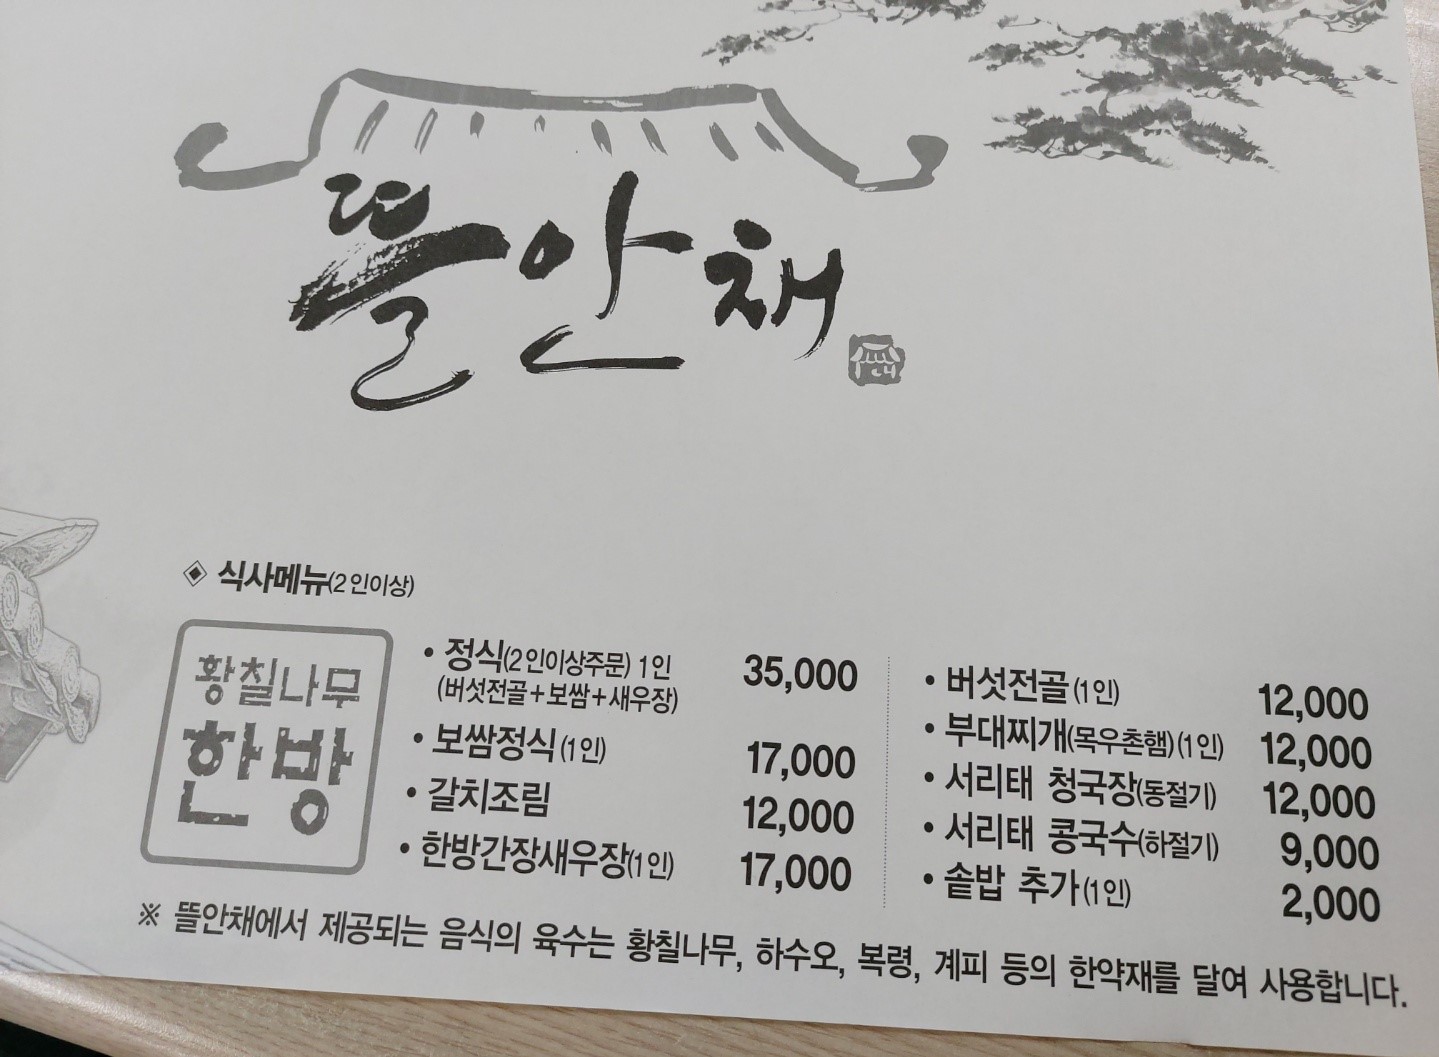 뜰안채
◈ 식사메뉴(2인이상)
황칠나무
한방
• 정식(2인이상주문) 1인 35,000
(버섯전골+보쌈+새우장)
• 보쌈정식(1인) 17,000
• 갈치조림 12,000
• 한방간장새우장(1인) 17,000
• 버섯전골(1인) 12,000
• 부대찌개(목우촌햄)(1인) 12,000
• 서리태 청국장(동절기) 12,000
• 서리태 콩국수(하절기) 9,000
• 솥밥 추가(1인) 2,000
※ 뜰안채에서 제공되는 음식의 육수는 황칠나무, 하수오, 복령, 계피 등의 한약재를 달여 사용합니다.